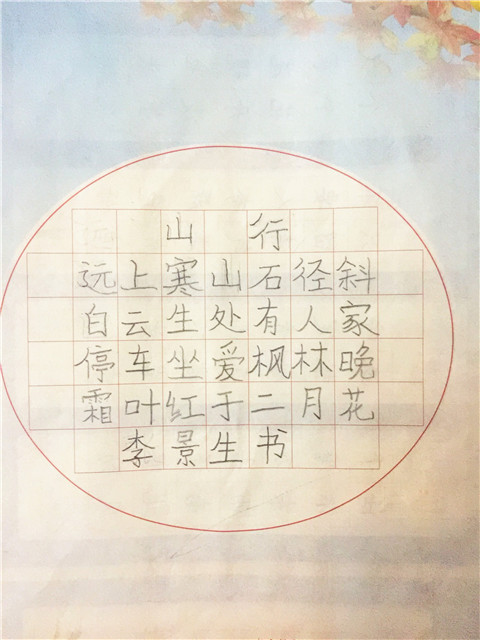 山行
远上寒山石径斜
白云生处有人家
停车坐爱枫林晚
霜叶红于二月花
李景生书